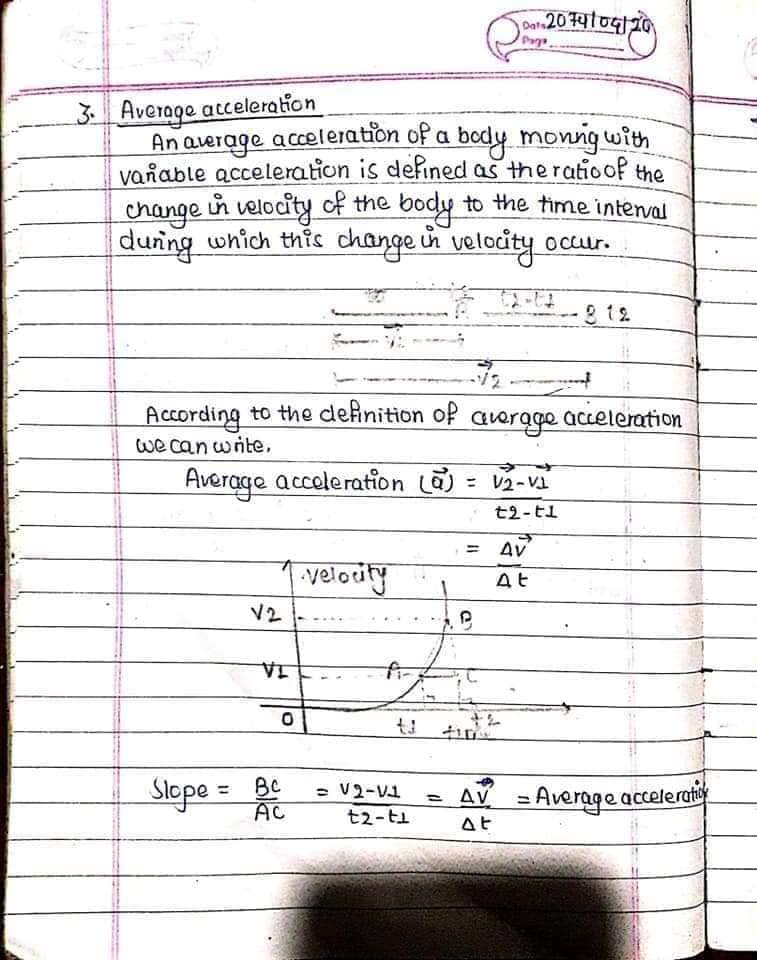 Date 2074/04/20
Page
3. Average acceleration
An average acceleration of a body moving with
variable acceleration is defined as the ratio of the
change in velocity of the body to the time interval
during which this change in velocity occur.
t2-t1
B t2
v⃗2
According to the definition of average acceleration
we can write,
Average acceleration (a⃗) = v⃗2-v⃗1
t2-t1
= Δv⃗
Δt
velocity
V2
B
V1
A
C
O
t1
t2
Slope = BC = v2-v1 = Δv⃗ = Average acceleration
AC t2-t1 Δt